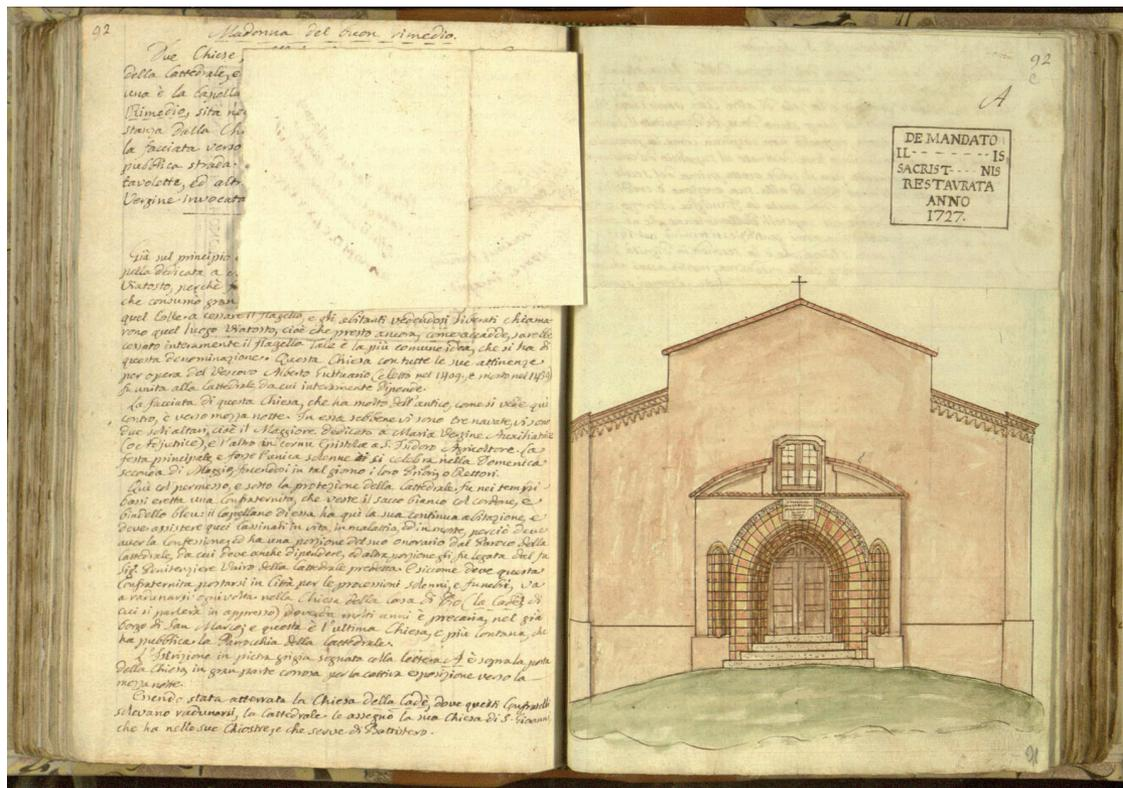 92
Madonna del buon rimedio.
Due Chiese
della Cattedrale, e
una è la Capella
Rimedio, sita ne
stanza dalla Ch
la facciata verso
pubblica strada.
tavolette, ed alt
Vergine invocata
Già sul principio
pella dedicata a
Viatosto, perchè
che consumò gran
quel lottera cessare il flagello, e gli abitanti vedendosi liberati chiama
rono quel luogo Viatosto, cioè che presto ancora, come accadde, sarebbe
cessato interamente il flagello. Tale è la più comune idea, che si ha di
questa denominazione. Questa Chiesa con tutte le sue attinenze
per opera del Vescovo Alberto Guttuario (eletto nel 1409. e morto nel 1439)
fu unita alla Cattedrale, da cui interamente dipende.
La facciata di questa Chiesa, che ha molto dell'antico, come si vede qui
contro, è verso mezza notte. In essa sebbene vi sono tre navate, vi sono
due soli altari, cioè il Maggiore dedicato a Maria Vergine Auxiliatrice
(o Adjutrice), e l'altro in cornu Epistolæ a S. Isidoro Agricoltore. La
festa principale, e forse l'unica solenne si celebra nella Domenica
seconda di Maggio, facendovi in tal giorno i loro Priori, o Rettori.
Qui col permesso, e sotto la protezione della Cattedrale, fu nei tempi
bassi eretta una Confraternita, che veste il sacco bianco col cordone, e
bindello bleu: il Capellano di essa ha qui la sua continua abitazione, e
deve assistere quei Cassinati in vita, in malattia, ed in morte, perciò deve
aver la Confessione, ed ha una porzione del suo onorario dal Paroco della
Cattedrale, da cui deve anche dipendere, ed altra porzione gli fu legata dal fu
Sig. Penitenziere Vairo della Cattedrale predetta. E siccome deve questa
Confraternita portarsi in Città per le processioni solenni, e funebri, va
a radunarsi ogni volta nella Chiesa della Casa di Dio (la Cadè, di
cui si parlerà in appresso) dove da molti anni è precaria, nel già
borgo di San Marco; e questa è l'ultima Chiesa, e più lontana, che
ha pubblica la Parrochia della Cattedrale.
L'Iscrizione in pietra grigia segnata colla lettera A è sopra la porta
della Chiesa, in gran parte corrosa per la cattiva esposizione verso la
mezza notte.
Essendo stata atterrata la Chiesa della Cadè, dove questi Confratelli
solevano radunarsi, la Cattedrale le assegnò la sua Chiesa di S. Giovanni,
che ha nelle sue Chiostre, e che serve di Battistero.
92
A
DE MANDATO
IL - - - - - - - IS,
SACRIST - - - - NIS
RESTAVRATA
ANNO
1727.
91